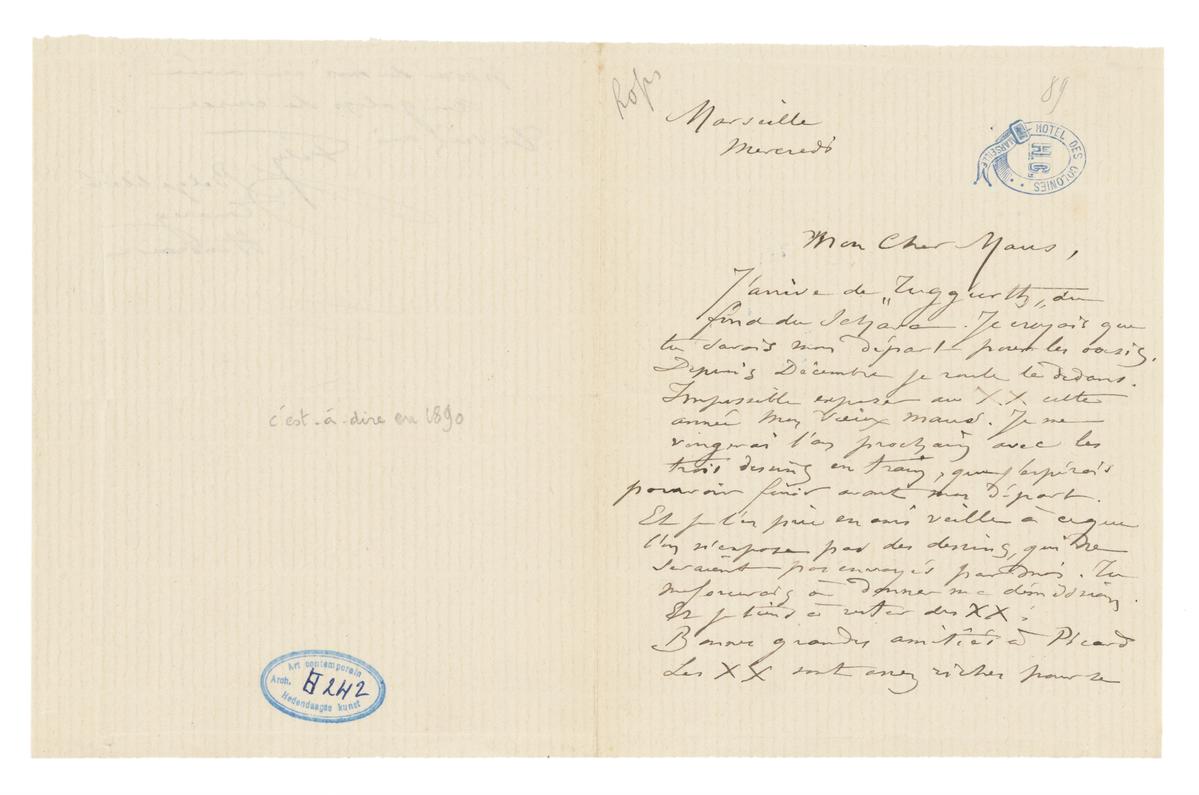 c'est-à-dire en 1890
Art contemporain
Arch. 242
Hedendaagse kunst
Rops
89
Marseille
Mercredi
HOTEL DES COLONIES
MARSEILLE
Mon Cher Maus,
J'arrive de „Tuggurth„ du
fond du Sahara. Je croyais que
tu savais mon départ pour les oasis.
Depuis Décembre je roule là dedans.
Impossible exposer au X.X. cette
année mon vieux maus. Je me
vengerai l'an prochain avec les
trois dessins en train, que j'espérais
pouvoir finir avant mon départ.
Et je t'en prie en ami veille à ce que
l'on n'expose pas des dessins, qui ne
seraient pas envoyés par moi. Tu
me forcerais à donner ma démission.
Et je tiens à rester des XX!
Bonnes grandes amitiés à Picard
Les XX sont assez riches pour se